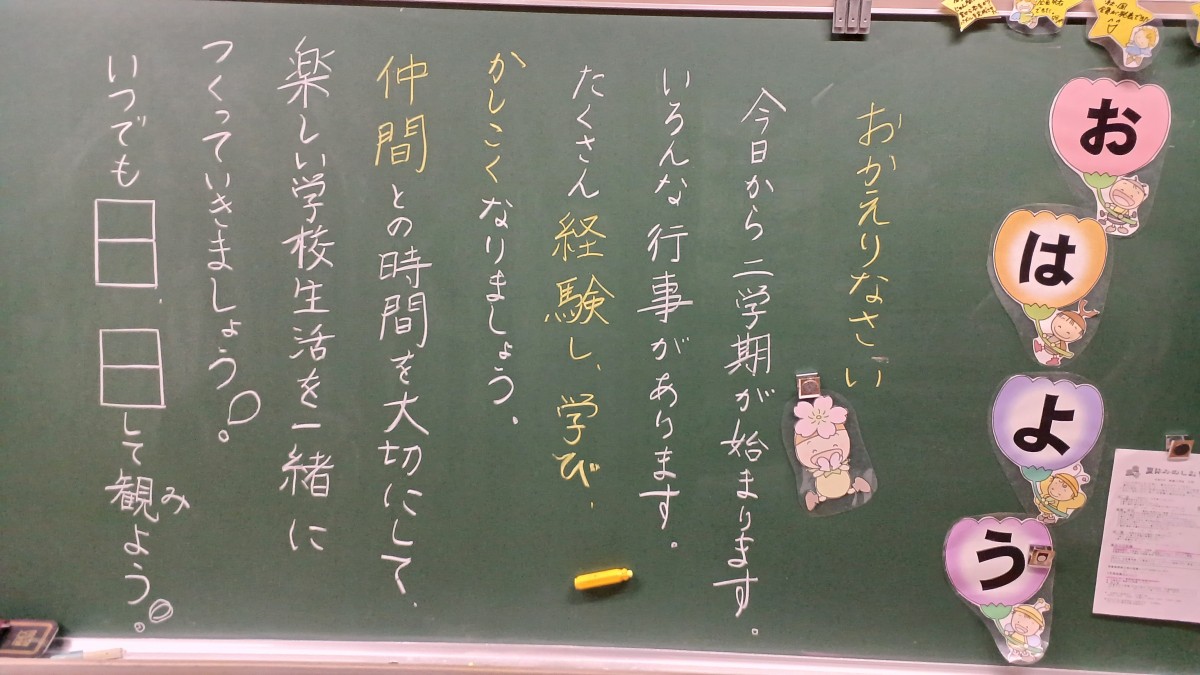 おはよう
おかえりなさい
今日から二学期が始まります。
いろんな行事があります。
たくさん経験し、学び、
かしこくなりましょう。
仲間との時間を大切にして、
楽しい学校生活を一緒に
つくっていきましょう。
いつでも□□、□□して観よう。
み